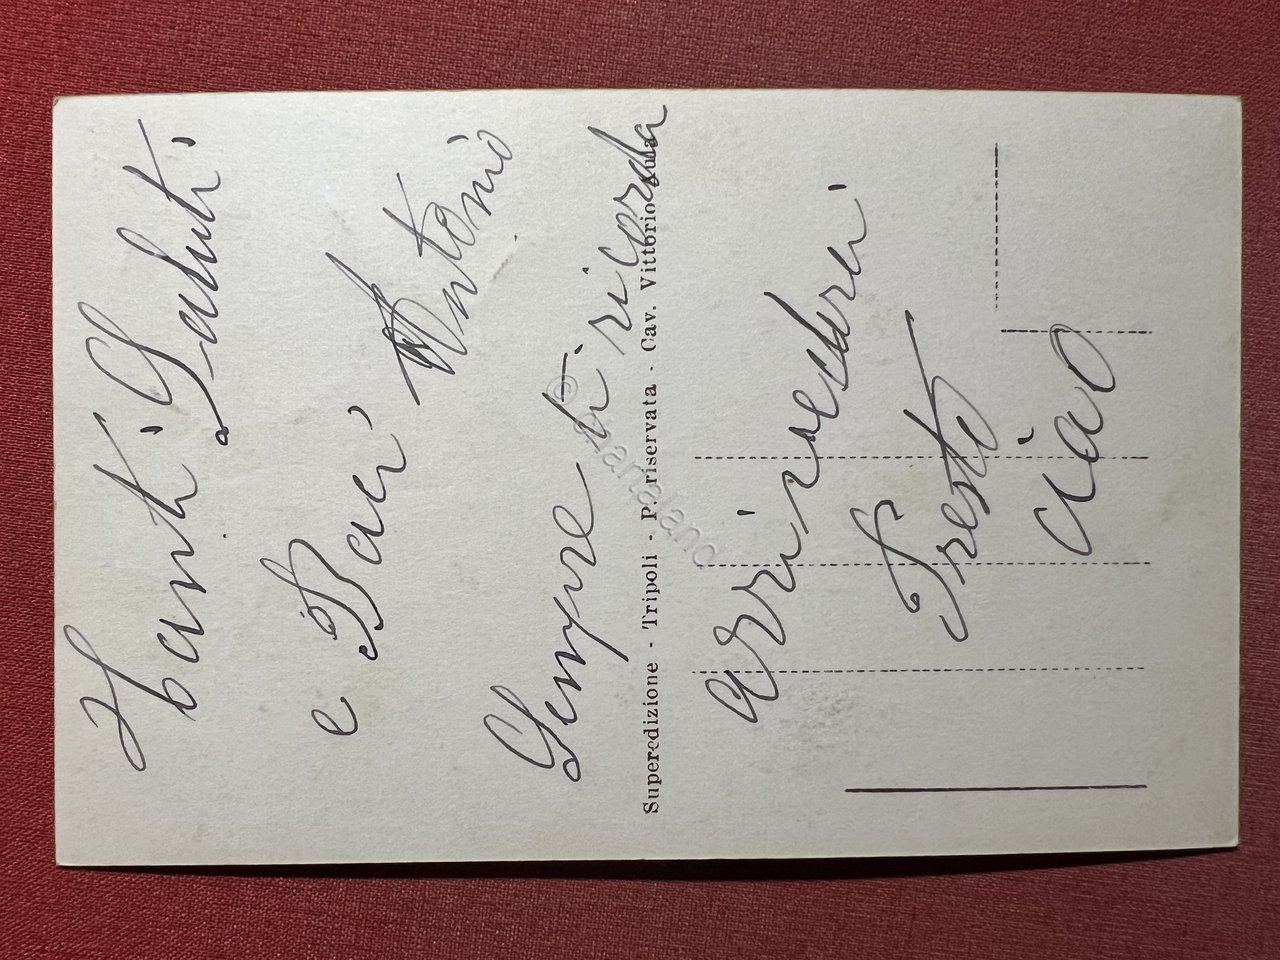 Tanti Saluti
e Baci Antonio
Sempre ti ricorda
Superedizione - Tripoli - P. riservata - Cav. Vittorio
arrivederci
Presto
ciao
© Cartoland